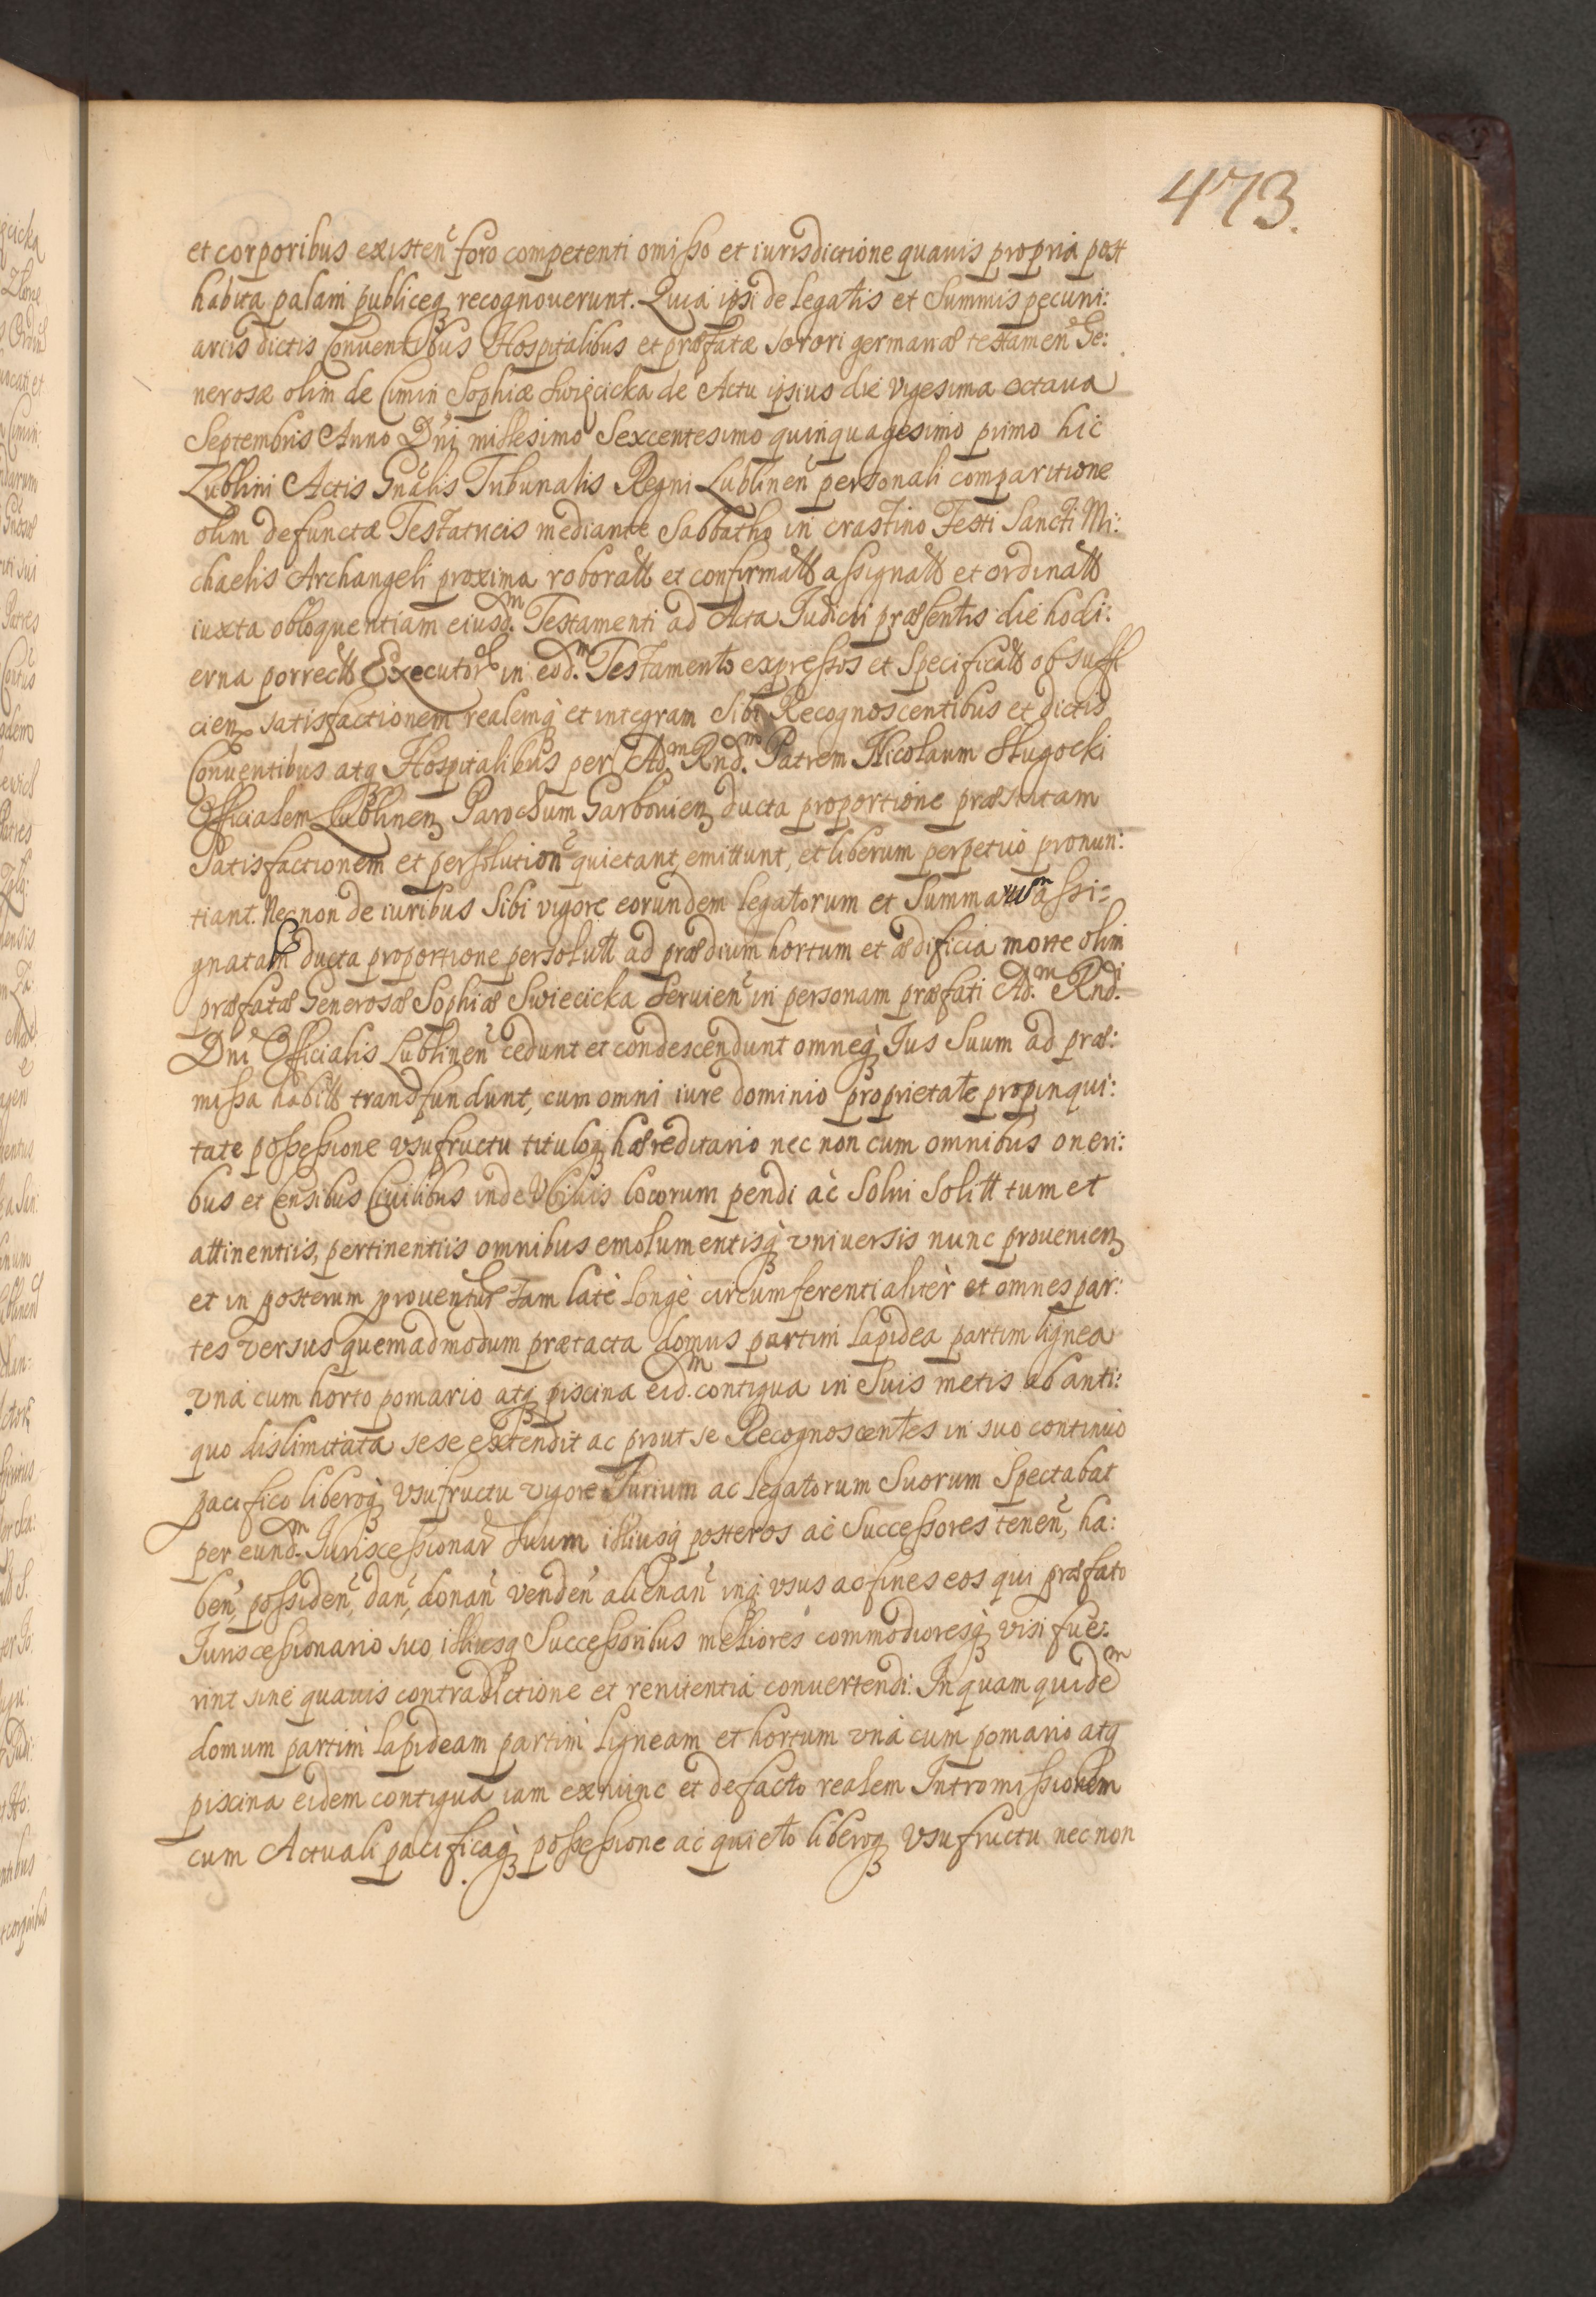 473.
et corporibus existen͠ foro competenti omisso et iurisdictione quauis propria post
habita palam publiceq̨ recognouerunt. Quia ipsi de legatis et Summis pecuni:
arijs dictis Conuentibus Hospitalibus et præfatæ Sorori germanæ testamen͠ Ge:
nerosæ olim de Cimin Sophiæ Swięcicka de Actu ipsius die vigesima octaua
Septembris Anno Dn͠i millesimo Sexcentesimo quinquagesimo primo hic
Lublini Actis Gn͠alis Tribunalis Regni Lublinen͠ personali comparitione
olim defunctæ Testatricis mediante Sabbatho in crastino Festi Sancti Mi:
chaelis Archangeli proxima roboratt et confirmatt assignatt et ordinatt
iuxta obloquentiam eiusd.m Testamenti ad Acta Iudicii præsentis die hodi:
erna porrectt Executor in eod.m Testamento expressos et Specificatt ob suffi
cien. satisfactionem realemq̨ et integram Sibi Recognoscentibus et dictis
Conuentibus atq̨ Hospitalibus per Ad.m Rnd.m Patrem Nicolaum Sługocki
Officialem Lublinen Parochum Garbouien ducta proportione præstitam
Satisfactionem et persolution͠ quietant, emittunt, et liberum perpetuo pronun:
tiant. Nec non de iuribus Sibi vigore eorundem legatorum et Summarum assi:
gnatam ducta proportione persolutt ad prædium hortum et ædificia morte olim
præfatæ Generosæ Sophiæ Swiecicka Seruien͠ in personam præfati Ad.m Rnd.i
Dn͠i Officialis Lublinen͠ cedunt et condescendunt omneq̨ Ius Suum ad præ:
missa habitt transfundunt, cum omni iure dominio proprietate propinqui:
tate possessione vsufructu tituloq̨ hæreditario nec non cum omnibus oneri:
bus et Censibus Ciuilibus inde locorum pendi ac Solui Solitt tum et
attinentiis, pertinentiis omnibus emolumentisq̨ vniuersis nunc prouenien
et in posterum prouentur tam late longe circumferentialiter et omnes par:
tes versus quemadmodum prætacta domus partim lapidea partim lignea
vna cum horto pomario atq̨ piscina eid.m contigua in Suis metis ab anti:
quo dislimitata sese extendit ac prout se Recognoscentes in suo continuo
pacifico liberoq̨ vsufructu vigore Iurium ac legatorum Suorum Spectabat
per eund.m Iuriscessionar Suum illiusq̨ posteros ac Successores tenen͠, ha:
ben͠, possiden͠, dan͠, donan͠ venden͠ alienan͠ inq̨ vsus ac fines eos qui præfato
Iuriscessionario suo illiusq̨ Successoribus meliores commodioresq̨ visi fue:
rint sine quauis contradictione et renitentia conuertendi. In quam quidem
domum partim lapideam partim ligneam et hortum vna cum pomario atq̨
piscina eidem contigua iam ex nunc et de facto realem Intromissionem
cum Actuali pacificaq̨ possessione ac quieto liberoq̨ vsufructu nec non